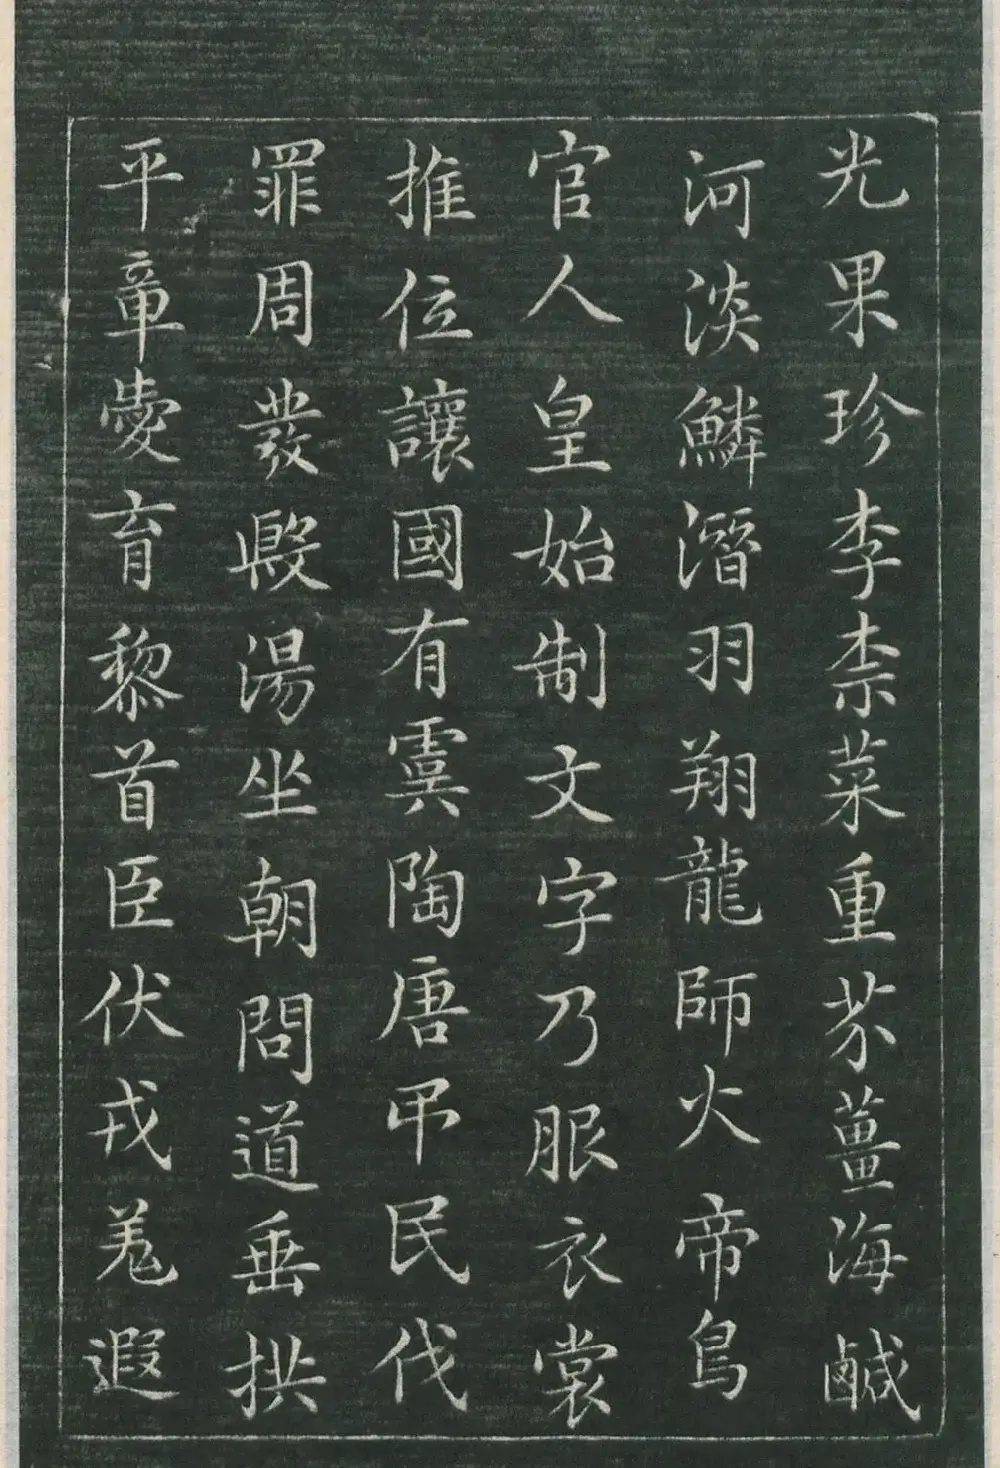 光果珍李柰菜重芥薑海鹹
河淡鱗潛羽翔龍師火帝鳥
官人皇始制文字乃服衣裳
推位讓國有虞陶唐弔民伐
罪周發殷湯坐朝問道垂拱
平章愛育黎首臣伏戎羌遐